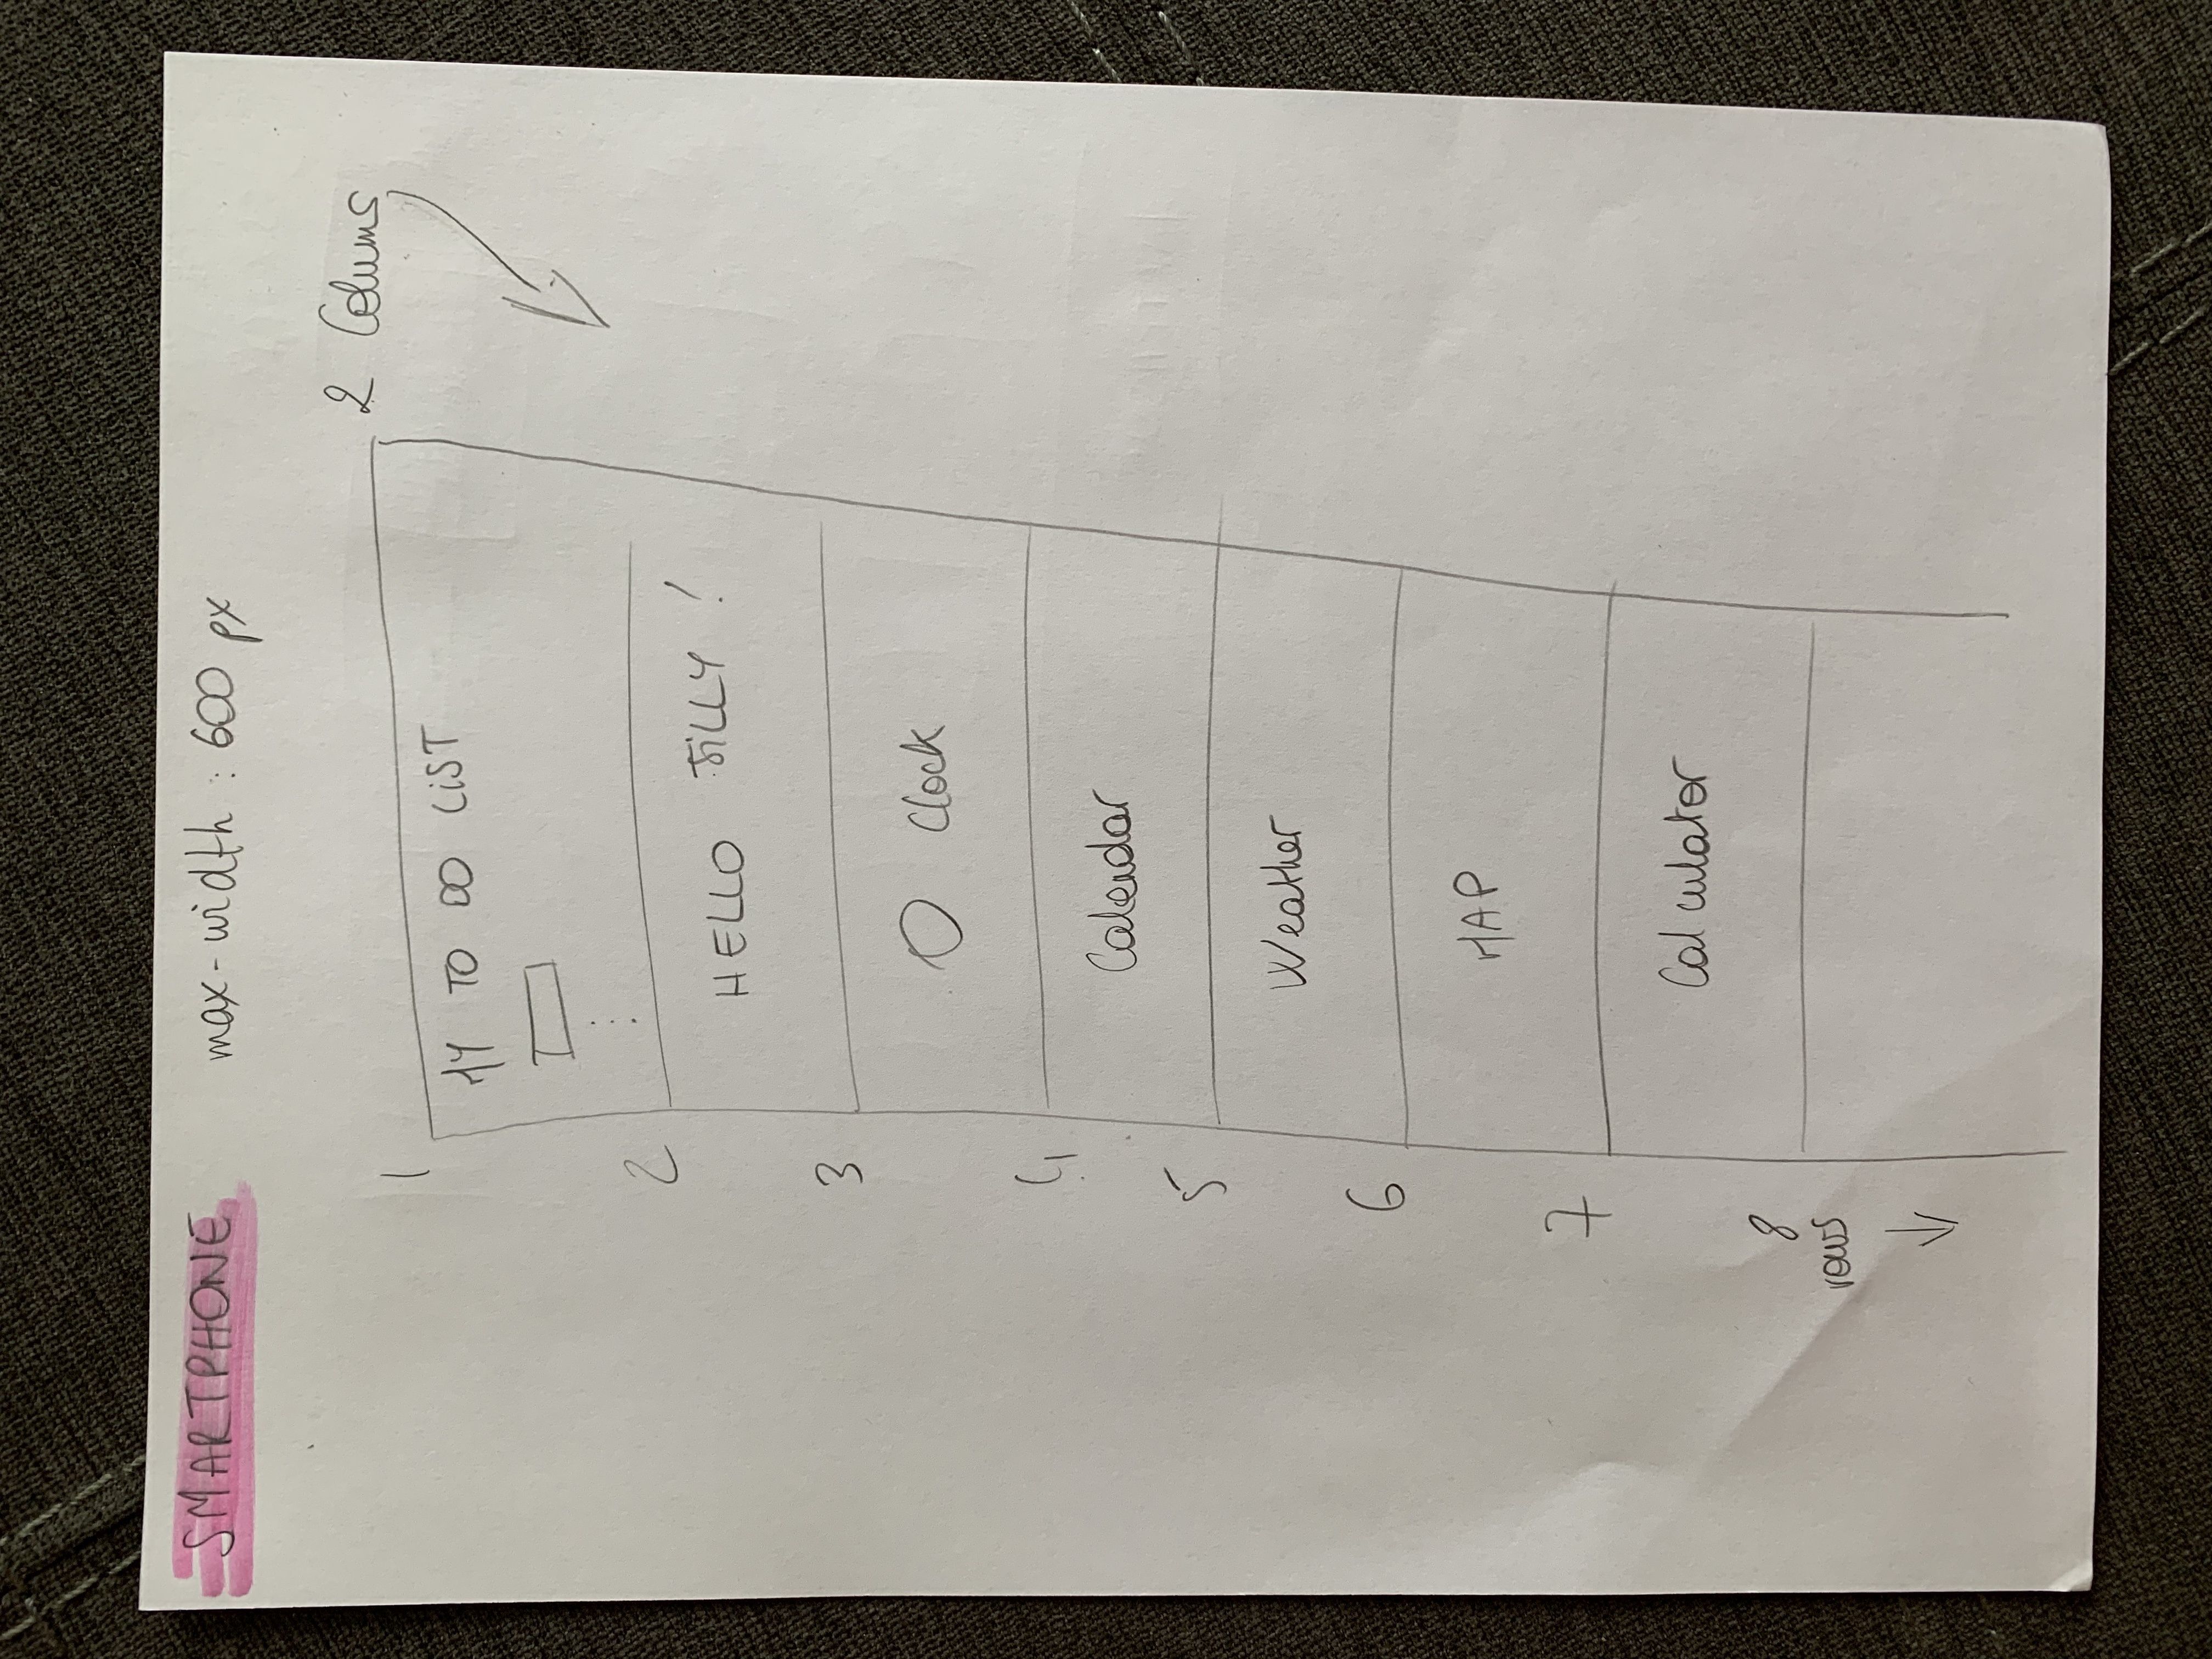 SMARTPHONE max-width : 600 px
2 Colums
1
MY TO DO LiST
2
HELLO JiLLY !
3
Clock
4
Calendar
5
Weather
6
MAP
7
Calculator
8
rows